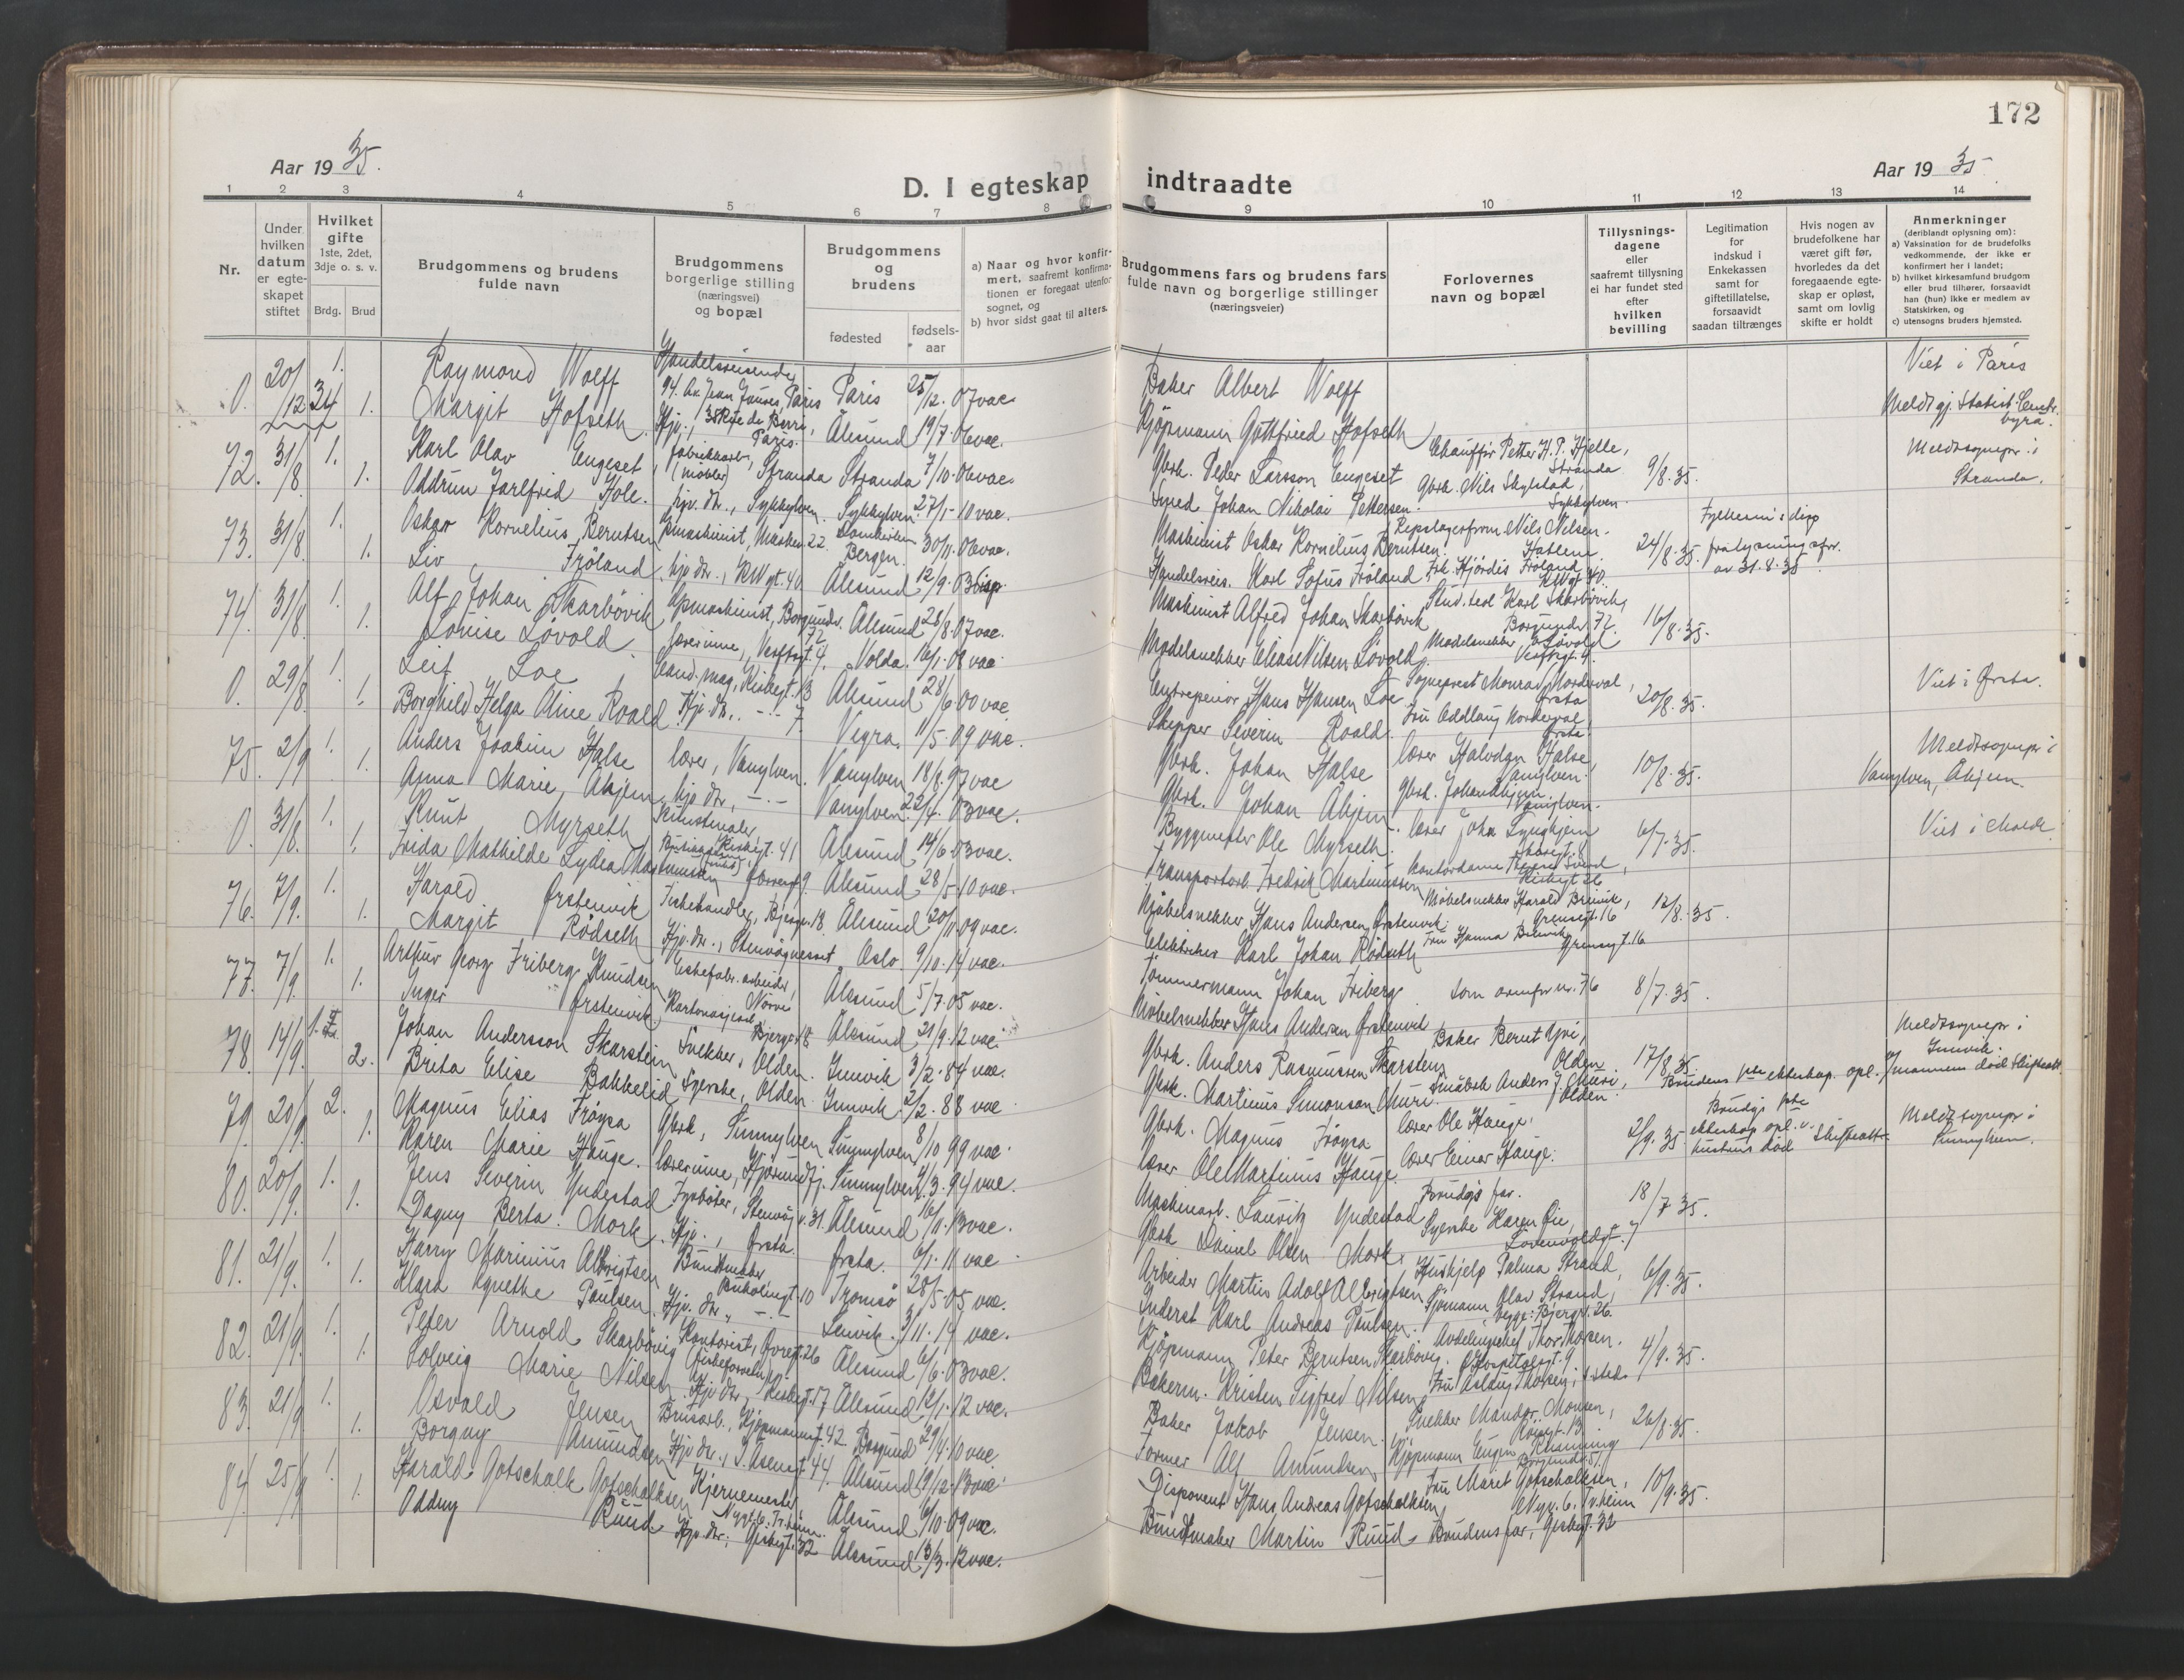 172
Aar 19 35.
D. I egteskap indtraadte
Aar 19 35
1 2 3 4 5 6 7 8 9 10 11 12 13 14
Nr.
Under hvilken datum er egteskapet stiftet
Hvilket gifte 1ste, 2det, 3dje o. s. v.
Brdg. Brud
Brudgommens og brudens fulde navn
Brudgommens borgerlige stilling (næringsvei) og bopæl
Brudgommens og brudens
fødested
fødsels-aar
a) Naar og hvor konfirmert, saafremt konfirmationen er foregaat utenfor sognet, og
b) hvor sidst gaat til alters.
Brudgommens fars og brudens fars fulde navn og borgerlige stillinger (næringsveier)
Forlovernes navn og bopæl
Tillysnings-dagene eller saafremt tillysning ei har fundet sted efter hvilken bevilling
Legitimation for indskud i Enkekassen samt for giftetillatelse, forsaavidt saadan tiltrænges
Hvis nogen av brudefolkene har været gift før, hvorledes da det foregaaende egteskap er opløst, samt om lovlig skifte er holdt
Anmerkninger (deriblandt oplysning om):
a) Vaksination for de brudefolks vedkommende, der ikke er konfirmert her i landet;
b) hvilket kirkesamfund brudgom eller brud tilhører, forsaavidt han (hun) ikke er medlem av Statskirken, og
c) utensogns bruders hjemsted.
0. 20/12 34 1. Raymond Wolff Handelsreisende, 94. Av. Jean Jaures, Paris Paris 25/12. 07 vac. Baker Albert Wolff Viet i Paris
1. Margit Hofseth Hjv., Paris. Ålesund 19/7. 06 vac. Kjöpmann Gottfried Hofseth Meldt gj. Statist. Centr. byrå.
72. 31/8. 1. Karl Olav Engeset fabrikkarb. (møbler), Stranda Stranda 7/10. 06 vac. Gbrk. Peder Larsson Engeset Chaufför Petter H. P. Hjelle, Stranda 9/8. 35. Meldt sognepr. i Stranda.
1. Oddrun Jarlfrid Hole. hjv. dr., Sykkylven. Sykkylven 27/1 - 10 vac. Smed Johan Nikolai Pettersen. Gbrk. Nils Skylstad, Sykkylven.
73. 31/8. 1. Oskar Kornelius Berntsen Bergen. 30/11. 06 vac. Maskinist Oskar Kornelius Berntsen. Nils Nelsen. 24/8. 35. av 31. 8. 35.
1. Liv Fröland hjv. dr., KWgt. 40. Ålesund 12/9. 03 Handelsreis. Karl Sofus Fröland Frk. Hjördis Fröland KWgt 40.
74. 31/8. 1. Alf Johan Skarbövik Borgundv. 72 Ålesund 28/8. 07 vac. Maskinist Alfred Johan Skarbövik Stud. teol Karl Skarbövik, Borgundv. 72. 16/8. 35.
1. Louise Lövold. lærerinne, Verftsgt. 4. Volda. 16/1. 08 vac Modelsnekker Elias Nilsen Lövold. Modelsnekker Lövold Verftsgt. 4.
0. 29/8. 1. Leif Loe Cand. mag, Kirkegt. 13 Ålesund 28/6. 00 vac. Entrepenör Hans Hansen Loe Sogneprest Monrad Norderval, Ørsta 20/8. 35. Viet i Ørsta.
1. Borghild Helga Oline Roald Hjv dr. -"- 7. Vigra. 11/5. 09 vac. Skipper Severin Roald. Fru Oddlaug Norderval, Ørsta.
75. 2/9 1. Anders Joakim Halse lærer, Vanylven. Vanylven 18/8. 97 vac Gbrk. Johan Halse lærer Halvdan Halse, Vanylven. 10/8. 35. Meldt sognepr i Vanylven, Åhjem.
1. Anna Marie Åhjem hjv dr, -"- Vanylven 22/4. 03 vac. Gbrk. Johan Åhjem. gbrk. Johan Åhjem Vanylven.
0. 31/8. 1. Knut Myrseth Kunstmaler, Kirkegt. 41 Ålesund 14/6. 03 vac. Byggmester Ole Myrseth. lærer Joha 6/7. 35. Viet i Molde
1. Frida Mathilde Lydia Martinussen 9. Ålesund 28/5. 10 vac. Transportarb. Fredrik Martinussen kontordame Kirkegt 26
76. 7/9. 1. Harald Ørstenvik Fiskehandler, Bjergv. 18 Ålesund 20/11. 09 vac. Möbelsnekker Hans Andersen Ørstenvik. Möbelsnekker Harald Brunvik, Grensegt. 16 12/8. 35.
1. Margit Rödseth Hjv. dr., Stenvågneset Oslo. 9/10. 14 vac. Elektriker Karl Johan Rödseth Fru Hanna Grensegt. 16
77. 7/9. 1. Arthur Georg Friberg Knudsen arbeider, Nørve Ålesund 5/7. 05 vac. Tömmermann Johan Friberg Som ovenfor nr. 76 8/7. 35.
1. Inger Ørstenvik Bjergv. 18 Ålesund 21/9. 12 vac. Möbelsnekker Hans Andersen Ørstenvik
78. 14/9. 1. Johan Andersson Skarstein Snekker, Olden. Innvik 3/2. 84 vac. Gbrk. Anders Rasmussen Skarsten Baker Bernt Yri, Olden 17/8. 35. Meldt sognepr i Innvik.
2. Brita Elise Bakkelid Syerske, Olden. Innvik. 2/2. 88 vac. Gbrk. Martinus Simonson Muri. Småbrk Anders J. Muri, Olden. Brudens 1ste ekteskap. opl. v/ mannens död
79. 20/9 2. Magnus Elias Fröysa Gbrk, Sunnylven Sunnylven 8/10 99 vac. Gbrk. Magnus Fröysa lærer Ole Hauge. 2/9. 35 Brudg. 1ste ekteskap opl. v. hustrus död Meldt sognepr i Sunnylven.
1. Karen Marie Hauge. lærerinne, Hjörundfj. Sunnylven 3. 94 vac. lærer Ole Martinus Hauge lærer Einar Hauge.
80. 20/9. 1. Jens Severin Yndestad Fyrböter, Stenvåg v. 31. Ålesund 16/11. 13 vac. Maskinarb. Lauritz Yndestad Brudg's far. 18/7 35.
1. Dagny Berta Mork. Hjv., Ørsta. Ørsta. 6/1. 11 vac. Gbrk Daniel Olsen Mork. Syerske Karen Øie, Lövenvoldgt. 7
81. 21/9. 1. Harry Marinius Albrigtsen Buntmaker, Bukholmgt. 10 Tromsö 28/5. 05 vac. Arbeider Martin Adolf Albrigtsen Hushjelp Palma Strand, 6/9. 35.
1. Klara Agnethe Paulsen. Hjv. dr. -"- Lenvik. 3/11. 14 vac. Inderst Karl Andreas Paulsen. Sjömann Olav Strand, begge: Bjergv. 26.
82. 21/9. 1. Peter Arnold Skarbövig Kontorist, 26 Ålesund 6/6. 03 vac. Kjöpmann Peter Berntsen Skarbövig. Avdelingschef Thor Thorsen. Hospitalsgt. 9 4/9. 35.
1. Solveig Marie Nilsen. Hjv. dr., Kirkegt. 17 Ålesund 12/1. 12 vac. Bakerm. Kristen Sigfred Nilsen Fru Aslaug Thorsen, i. sted.
83. 21/9 1. Osvald Jensen Brusarb., Kjöpmannsgt. 42 Borgund 29/4. 10 vac. Baker Jakob Jensen. Snekker Mandor Monsen, 26/8. 35.
1. Borgny Amundsen Hjv dr., I. Åsensgt 44. Ålesund 19/12. 13 vac. Former Alf Amundsen Kjöpmann Borgundv. 51.
84. 25/9 1. Harald Gotschalk Gotschalksen Nygt. 6. Tr.heim. Ålesund 6/10. 09 vac. Disponent Hans Andreas Gotschalksen, Fru Maret Gotschalksen, Nygt. 6. Tr.heim 10/9. 35.
1. Oddny Ruud. Hjv. dr., 32 Ålesund 13/3. 12 vac. Buntmaker Martin Ruud. Brudens far, 32